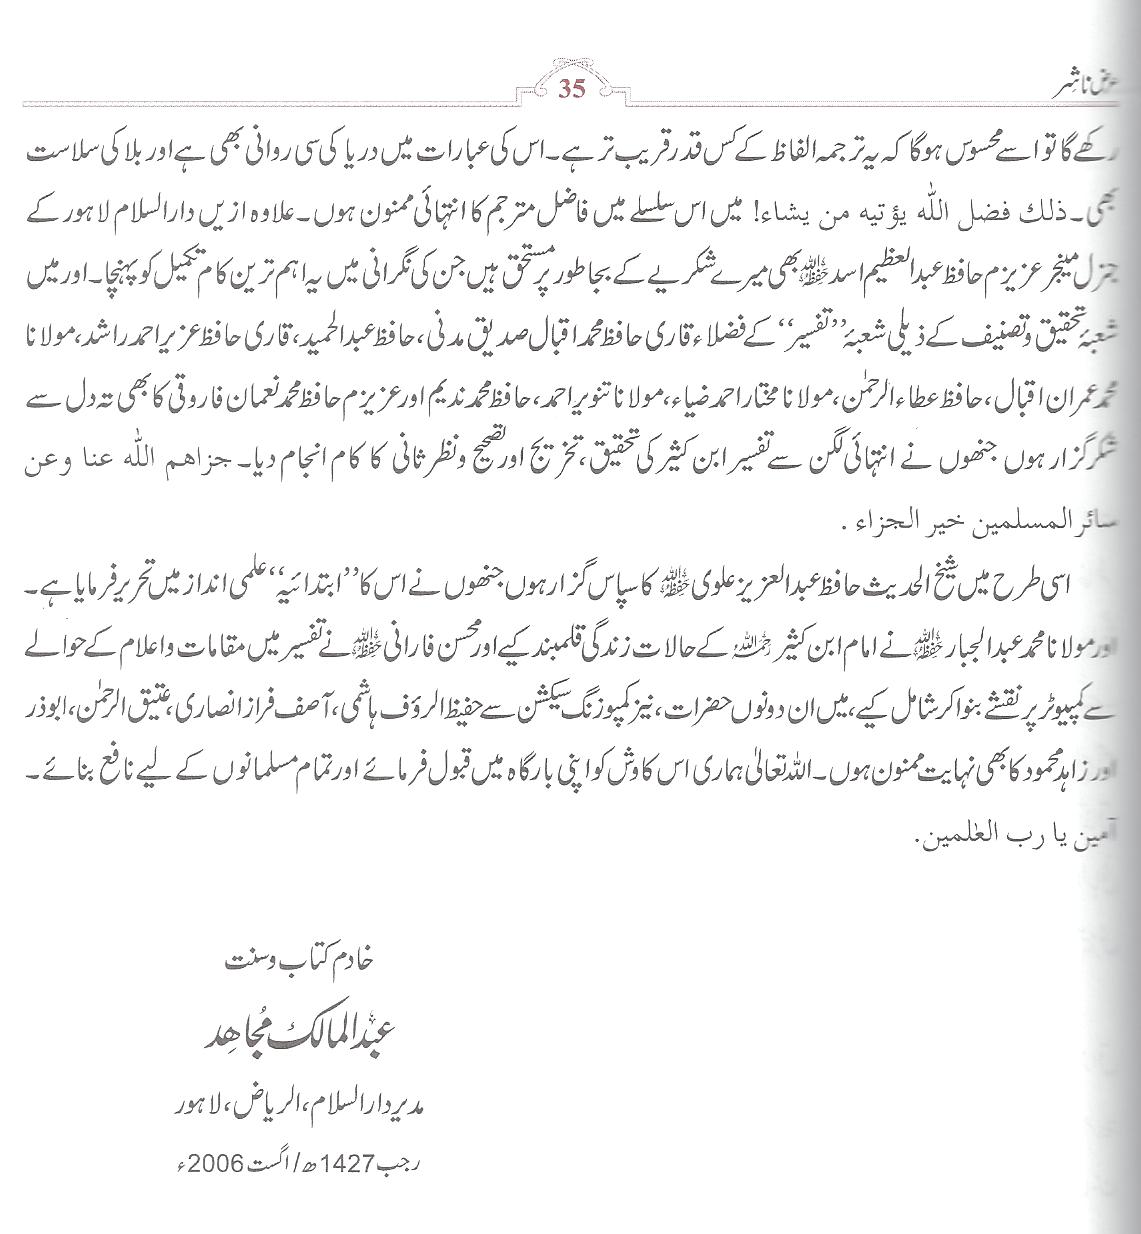 عرض ناشر
35
رکھے گا تو اسے محسوس ہوگا کہ یہ ترجمہ الفاظ کے کس قدر قریب تر ہے۔ اس کی عبارات میں دریا کی سی روانی بھی ہے اور بلا کی سلاست
بھی۔ ذلك فضل الله يؤتيه من يشاء! میں اس سلسلے میں فاضل مترجم کا انتہائی ممنون ہوں۔ علاوہ ازیں دارالسلام لاہور کے
جنرل مینجر عزیزم حافظ عبدالعظیم اسد حفظہ اللہ بھی میرے شکریے کے بجا طور پر مستحق ہیں جن کی نگرانی میں یہ اہم ترین کام تکمیل کو پہنچا۔ اور میں
شعبۂ تحقیق و تصنیف کے ذیلی شعبۂ ’’تفسیر‘‘ کے فضلاء قاری حافظ محمد اقبال صدیق مدنی، حافظ عبدالحمید، قاری حافظ عزیر احمد راشد، مولانا
محمد عمران اقبال، حافظ عطاء الرحمٰن، مولانا مختار احمد ضیاء، مولانا تنویر احمد، حافظ محمد ندیم اور عزیزم حافظ محمد نعمان فاروقی کا بھی تہ دل سے
شکر گزار ہوں جنھوں نے انتہائی لگن سے تفسیر ابن کثیر کی تحقیق، تخریج اور تصحیح و نظر ثانی کا کام انجام دیا۔ جزاهم الله عنا وعن
سائر المسلمين خير الجزاء .
اسی طرح میں شیخ الحدیث حافظ عبدالعزیز علوی حفظہ اللہ کا سپاس گزار ہوں جنھوں نے اس کا ’’ابتدائیہ‘‘ علمی انداز میں تحریر فرمایا ہے۔
اور مولانا محمد عبدالجبار حفظہ اللہ نے امام ابن کثیر رحمہ اللہ کے حالات زندگی قلمبند کیے اور محسن فارانی حفظہ اللہ نے تفسیر میں مقامات و اعلام کے حوالے
سے کمپیوٹر پر نقشے بنوا کر شامل کیے، میں ان دونوں حضرات، نیز کمپوزنگ سیکشن سے حفیظ الرؤف ہاشمی، آصف فراز انصاری، عتیق الرحمٰن، ابوذر
اور زاہد محمود کا بھی نہایت ممنون ہوں۔ اللہ تعالیٰ ہماری اس کاوش کو اپنی بارگاہ میں قبول فرمائے اور تمام مسلمانوں کے لیے نافع بنائے۔
آمين يا رب العٰلمين.
خادم کتاب و سنت
عبدالمالک مُجاہِد
مدیر دارالسلام، الریاض، لاہور
رجب 1427ھ/اگست 2006ء